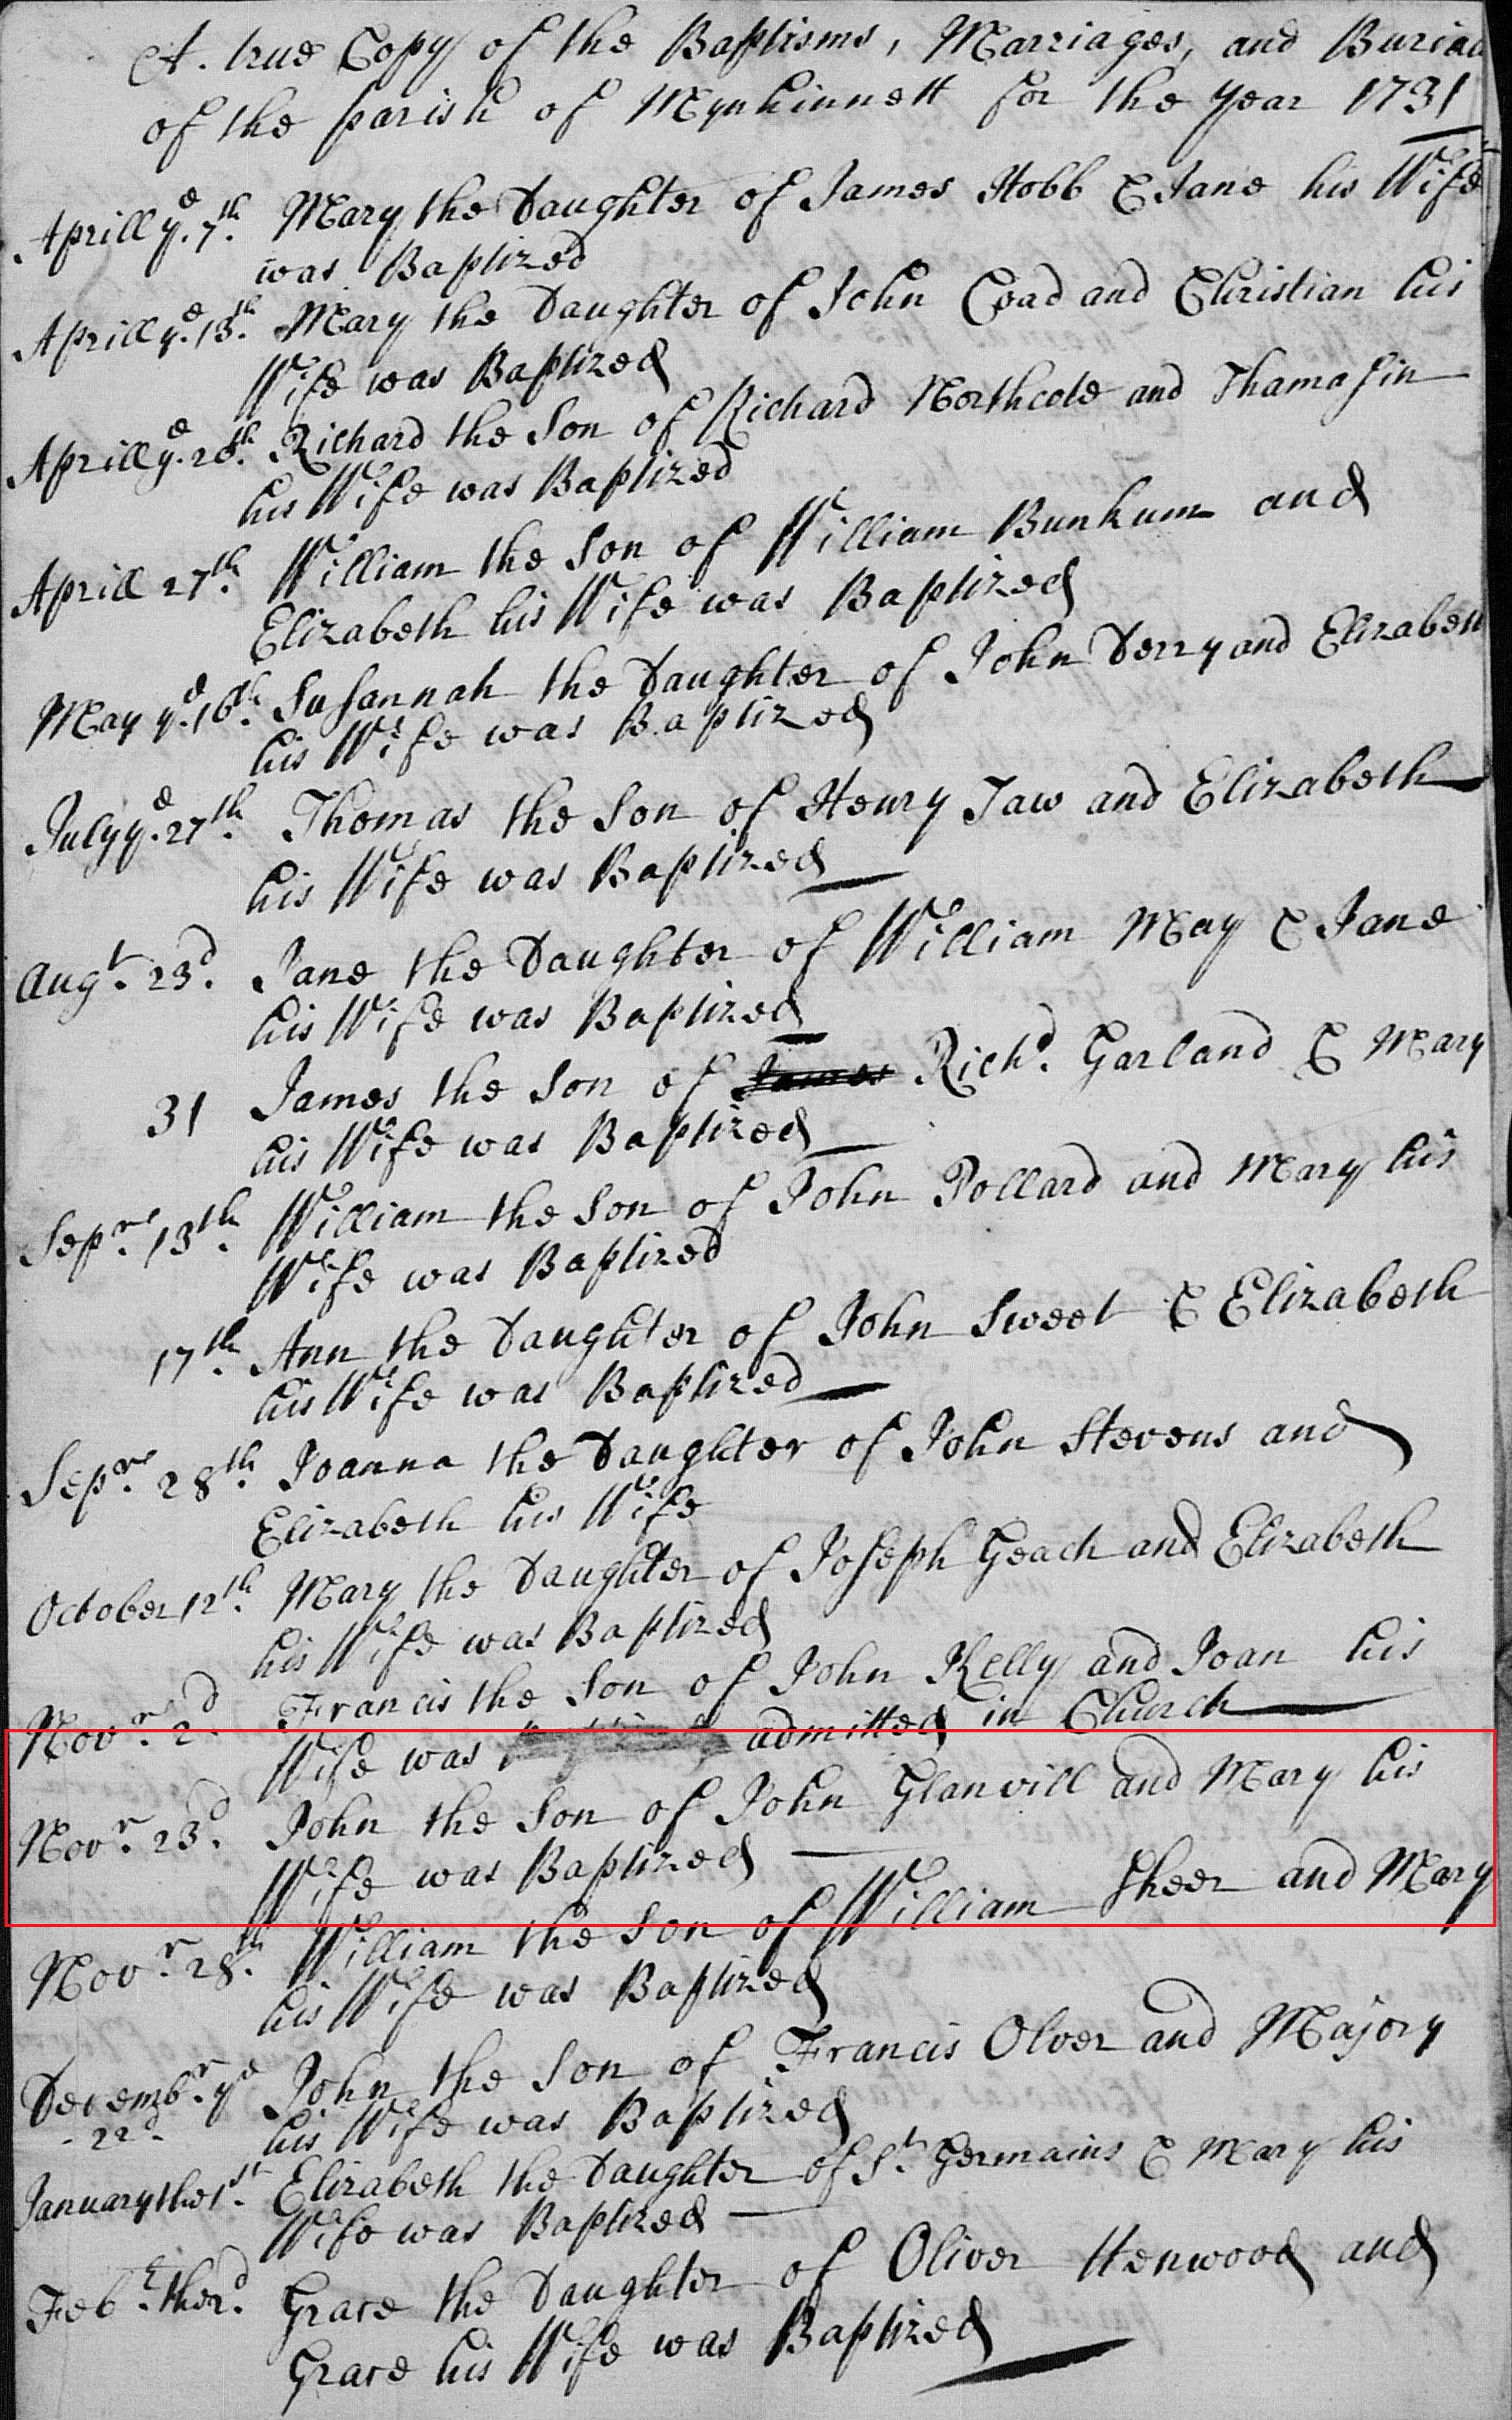 A. true Copy of the Baptisms, Marriages, and Burial
of the parish of Mynhinnett for the year 1731
Aprill ye. 7th. Mary the Daughter of James Hobb & Jane his Wife
was Baptized
Aprill ye. 13th. Mary the Daughter of John Coad and Christian his
Wife was Baptized
Aprill ye. 20th. Richard the Son of Richard Northcote and Thamasin
his Wife was Baptized
Aprill 27th. William the Son of William Bunkum and
Elizabeth his Wife was Baptized
May ye. 16th. Susannah the Daughter of John Derry and Elizabeth
his Wife was Baptized
July ye. 27th. Thomas the Son of Henry Jaw and Elizabeth
his Wife was Baptized
Augt. 23d. Jane the Daughter of William May & Jane
his Wife was Baptized
31 James the Son of James Richd. Garland & Mary
his Wife was Baptized
Sepr. 13th. William the Son of John Pollard and Mary his
Wife was Baptized
17th. Ann the Daughter of John Sweet & Elizabeth
his Wife was Baptized
Sepr. 28th. Joanna the Daughter of John Stevens and
Elizabeth his Wife
October 12th. Mary the Daughter of Joseph Geach and Elizabeth
his Wife was Baptized
Novr. 2d. Francis the Son of John Kelly and Joan his
Wife was admitted in Church
Novr. 23d. John the Son of John Glanvill and Mary his
Wife was Baptized
Novr. 28th. William the Son of William Sheer and Mary
his Wife was Baptized
Decembr. ye John the Son of Francis Olver and Majory
22d his Wife was Baptized
January the 1st. Elizabeth the Daughter of St. Germains & Mary his
Wife was Baptized
Feb. the 2d. Grace the Daughter of Oliver Henwood and
Grace his Wife was Baptized